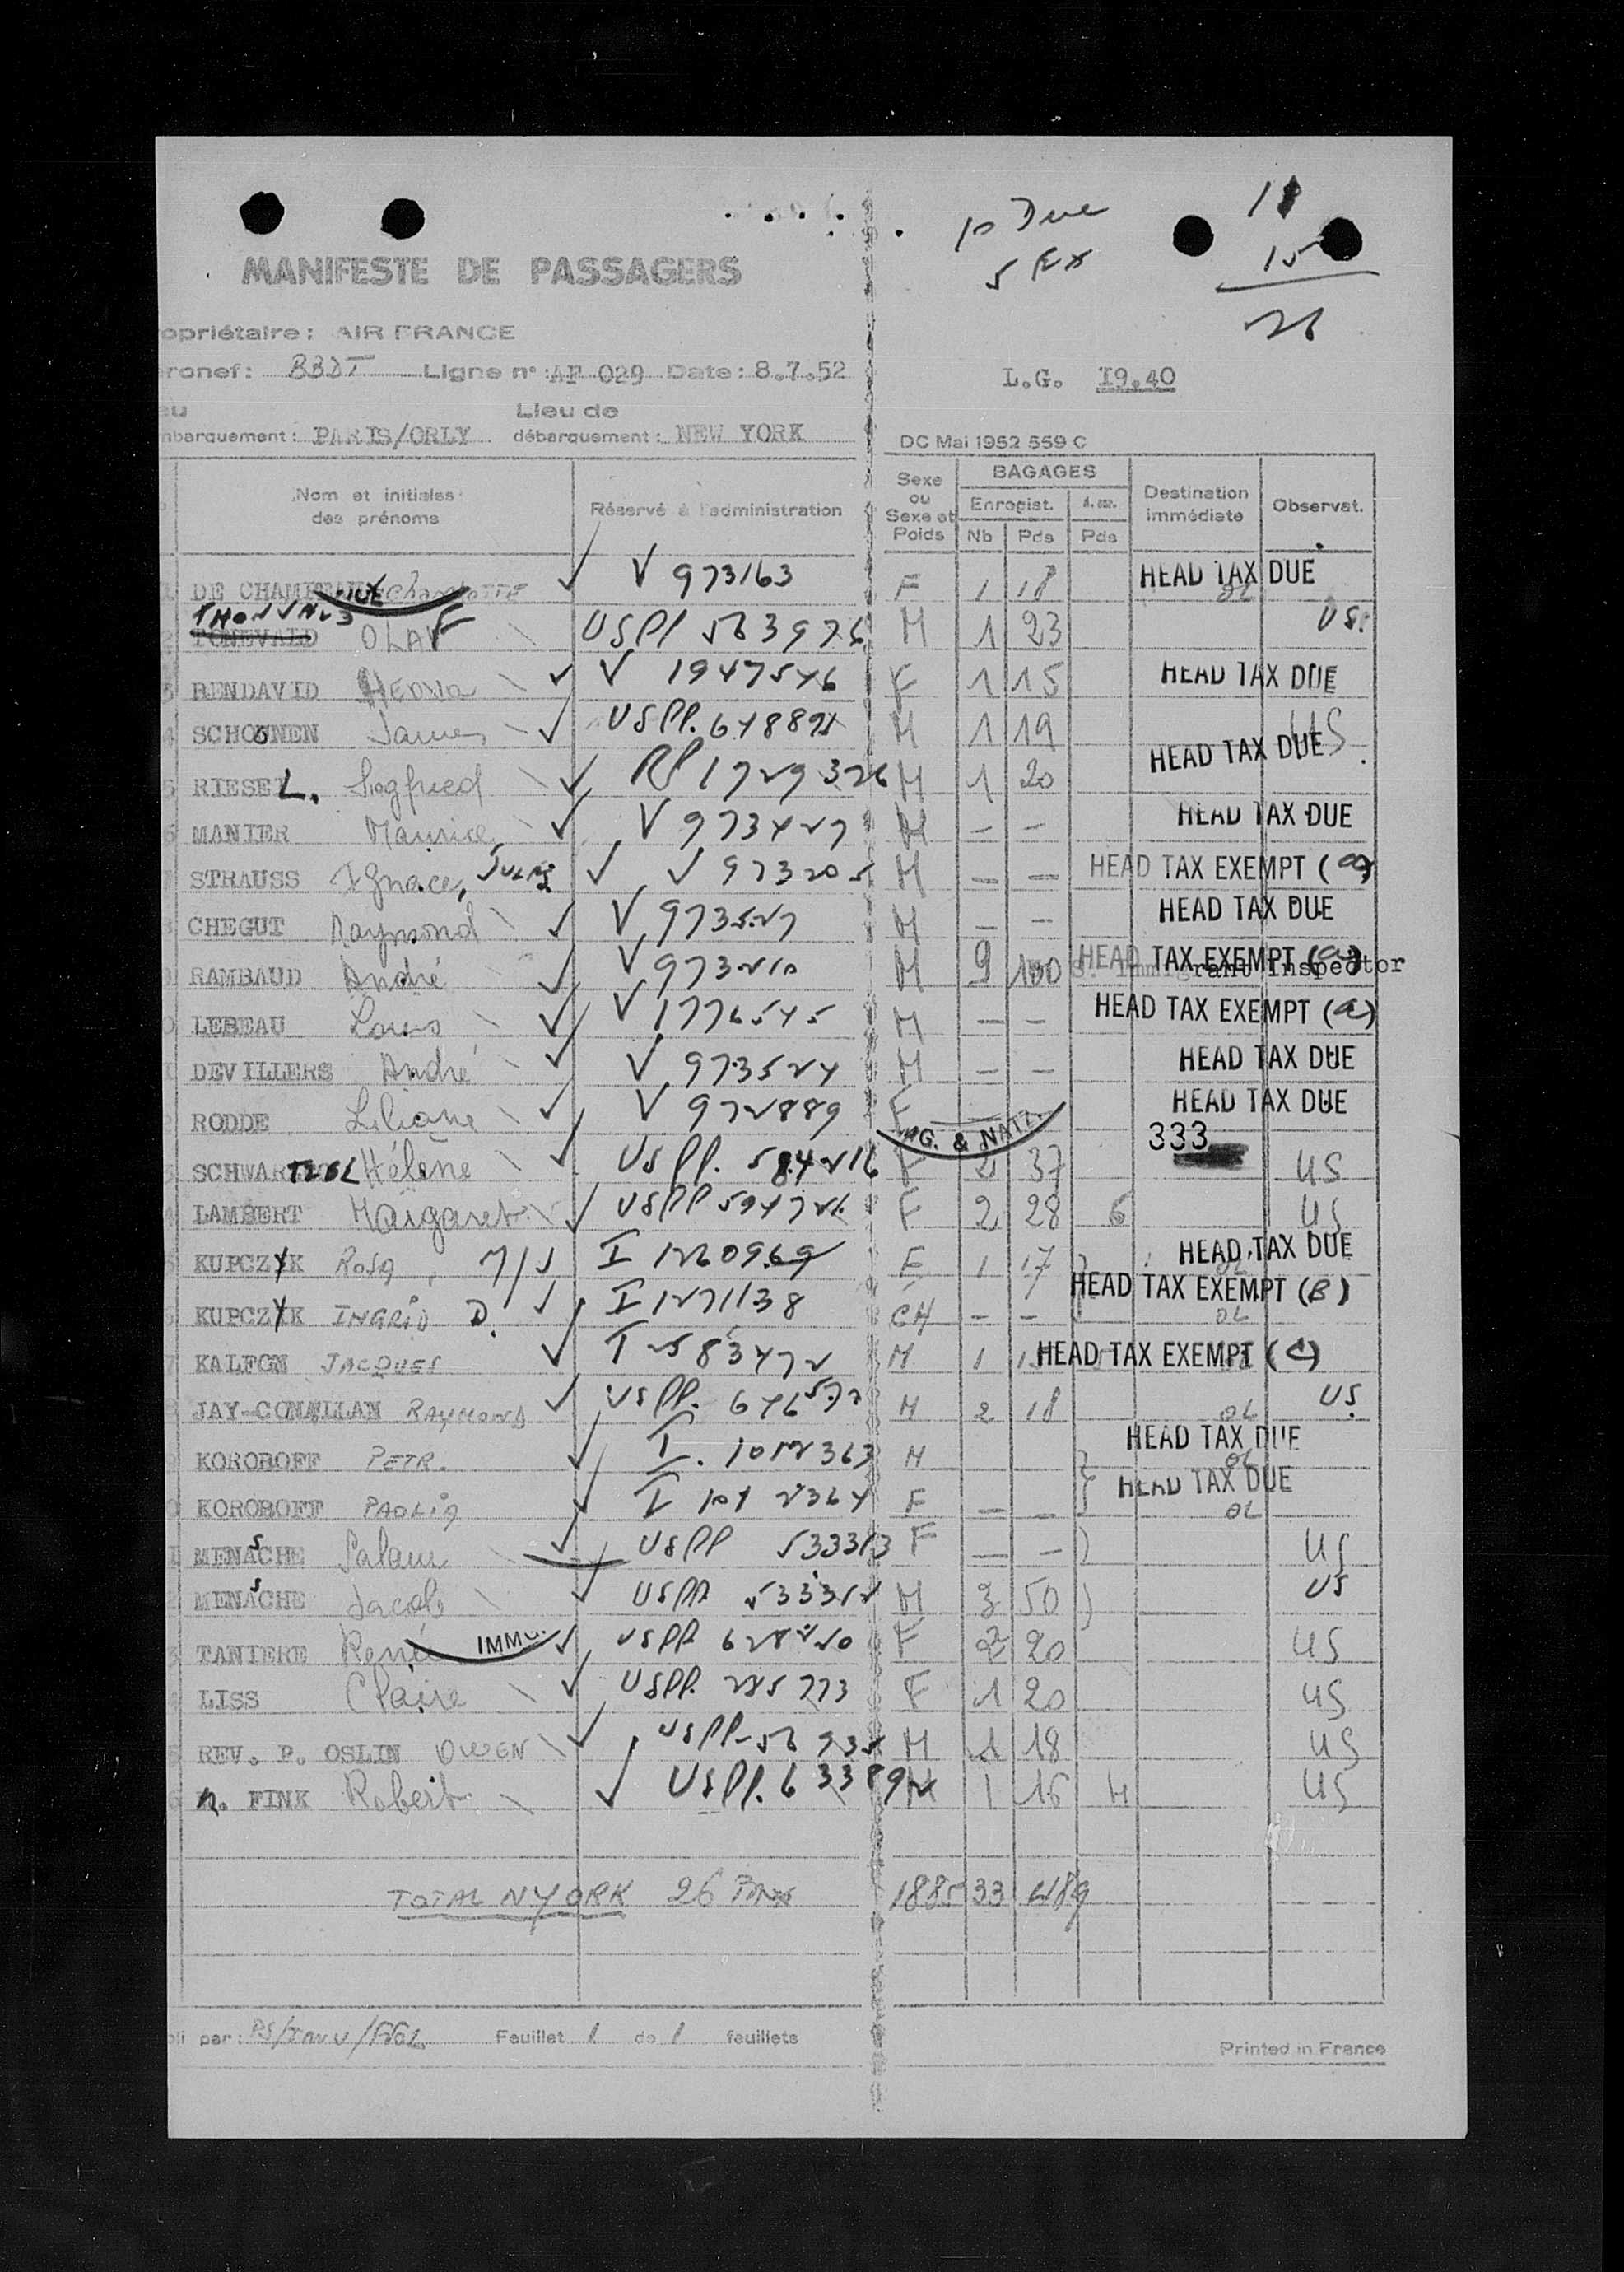 10 Due
5 Ex
11
15
26
MANIFESTE DE PASSAGERS
opriétaire : AIR FRANCE
ronef : BBDT Ligne n° : AF 029 Date : 8.7.52
L.G. I9.40
eu
Lieu de
mbarquement : PARIS/ORLY débarquement : NEW YORK
DC Mai 1952 559 C
Nom et initiales des prénoms
Réservé à l'administration
Sexe ou Sexe et Poids
BAGAGES
Enregist.
Nb Pds Pds
Destination immédiate
Observat.
DE V 973163 F 1 18 HEAD TAX DUE
OLAF USPP 563976 M 1 23 US.
BENDAVID Hedva V 1947546 F 1 15 HEAD TAX DUE
SCHOONEN James USPP. M 1 19 US
RIESEL. Siegfried RP 1729326 M 1 20 HEAD TAX DUE
MANIER Maurice V 973427 M — — HEAD TAX DUE
STRAUSS Ignace, Jules V 973205 M — — HEAD TAX EXEMPT (a)
CHEGUT Raymond V 973527 M — — HEAD TAX DUE
RAMBAUD André V 973210 M 9 100 HEAD TAX EXEMPT (a)
Immigrant Inspector
LEBEAU Louis V 1776545 M — — HEAD TAX EXEMPT (a)
DEVILLERS André V 973524 M — — HEAD TAX DUE
RODDE Liliane V 972889 F HEAD TAX DUE
& NATZ.
333
Hélène USPP. 584216 F 2 37 US
LAMBERT Margaret USPP F 2 28 6 US
KUPCZYK ROSA I 1260969 F 1 17 HEAD TAX DUE
KUPCZYK INGRID D. I 1271138 CH — — HEAD TAX EXEMPT (B)
OL
KALFON JACQUES I 2583472 M 1 HEAD TAX EXEMPT (C)
JAY-CONNILLAN RAYMOND USPP. 646572 M 2 18 OL US.
KOROBOFF PETR. I. 1012363 M HEAD TAX DUE
OL
KOROBOFF PAOLIA I 1012364 F — — HEAD TAX DUE
OL
MENASCHE USPP 533313 F — — US
MENASCHE Jacob USPP 533312 M 3 50 US
TANIERE René USPP 628220 F 2 20 US
IMMG.
LISS Claire USPP. 285773 F 1 20 US
REV. P. OSLIN OWEN USPP M 1 18 US
FINK Robert USPP. 633892 M 1 16 4 US
TOTAL N YORK 26 PAX 1885 33 489
li par : Feuillet 1 de 1 feuillets
Printed in France